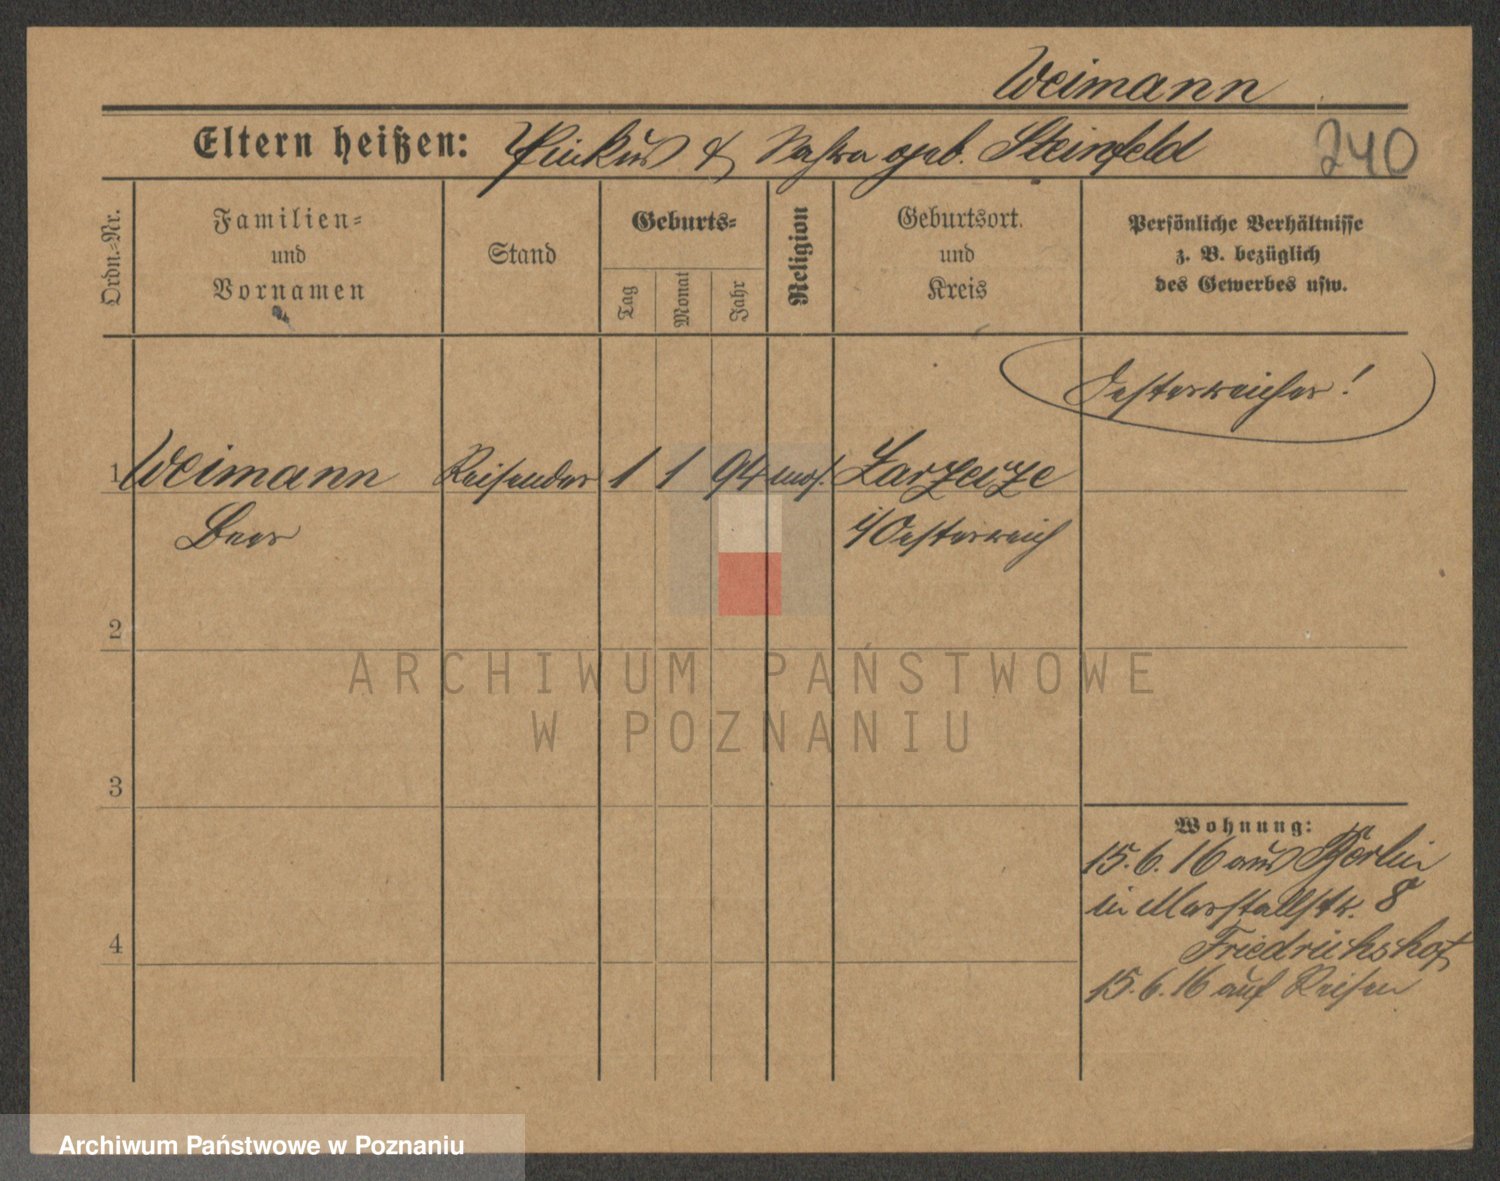 Weimann
Eltern heißen: Pinkus & geb. Steinfeld
240
Ordn.=Nr.
Familien= und Vornamen
Stand
Geburts=
Tag
Monat
Jahr
Religion
Geburtsort. und Kreis
Persönliche Verhältnisse
z. B. bezüglich
des Gewerbes usw.
Oesterreicher!
1 Weimann Reisender 1 1 94 mos. Zarzecze
Beer i/Oesterreich
2
3
4
Wohnung:
15.6.16 aus Berlin
in Marstallstr. 8
Friedrichshof
15.6.16 auf Reisen
ARCHIWUM PAŃSTWOWE
W POZNANIU
Archiwum Państwowe w Poznaniu